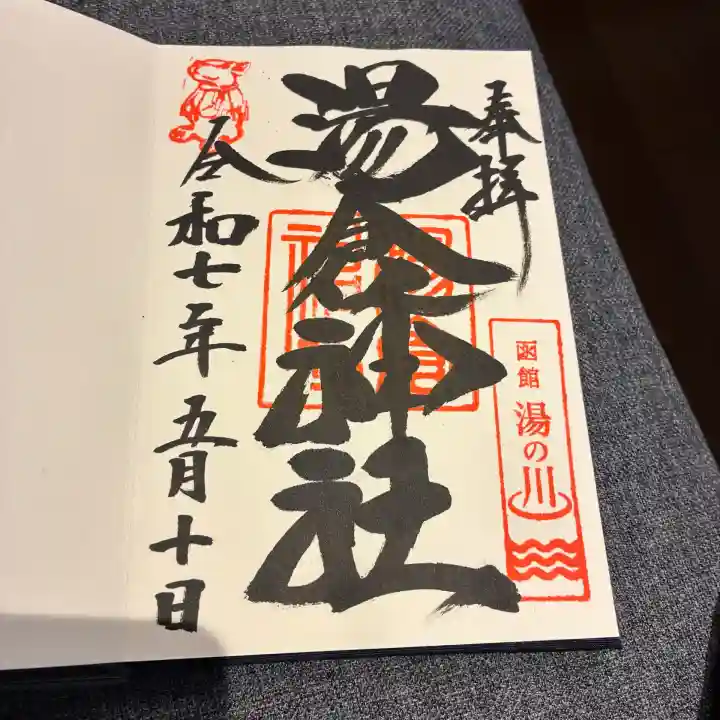 奉拝
函館
湯の川
湯倉神社
令和七年五月十日